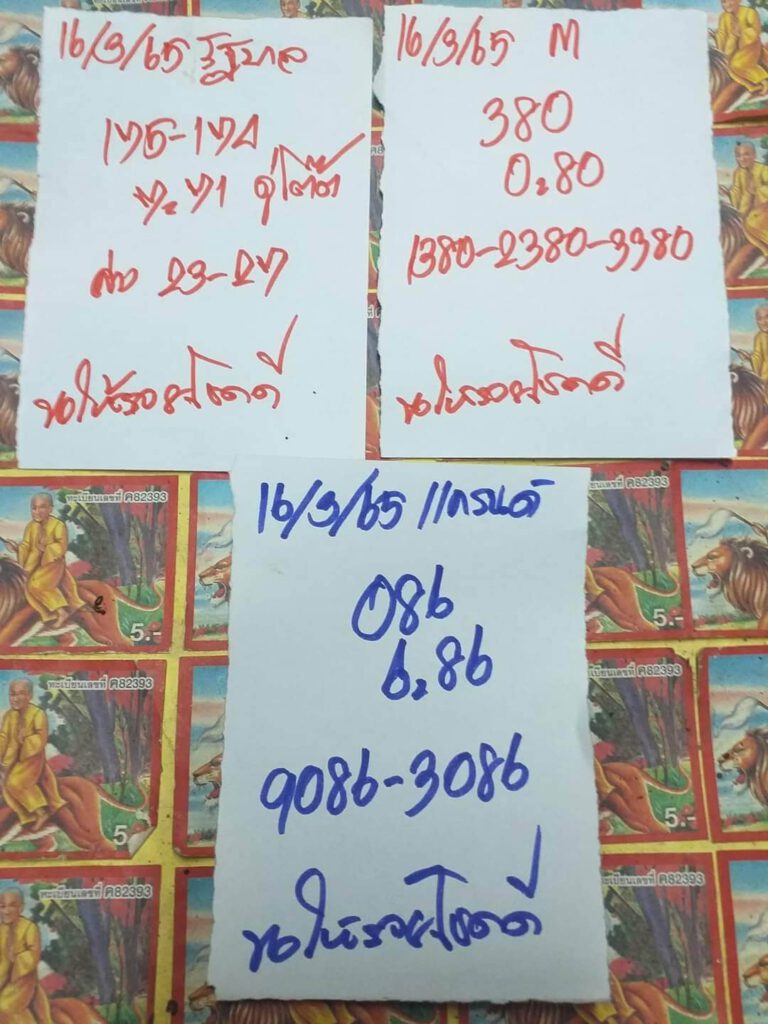 16/3/65 รัฐบาล
175-174
7.71 คู่โต๊ด
ล่าง 23-27
ขอให้รวยโชคดี
16/3/65 M
380
0.80
1380-2380-3380
ขอให้รวยโชคดี
16/3/65 แกรนด์
086
6.86
9086-3086
ขอให้รวยโชคดี
ทะเบียนเลขที่ ค82393
5.-
ค82393
5.-
ค82393
ทะเบียนเลขที่ ค82393
5
ค82393
5.-
ทะเบียนเลขที่ ค82393
ค82393